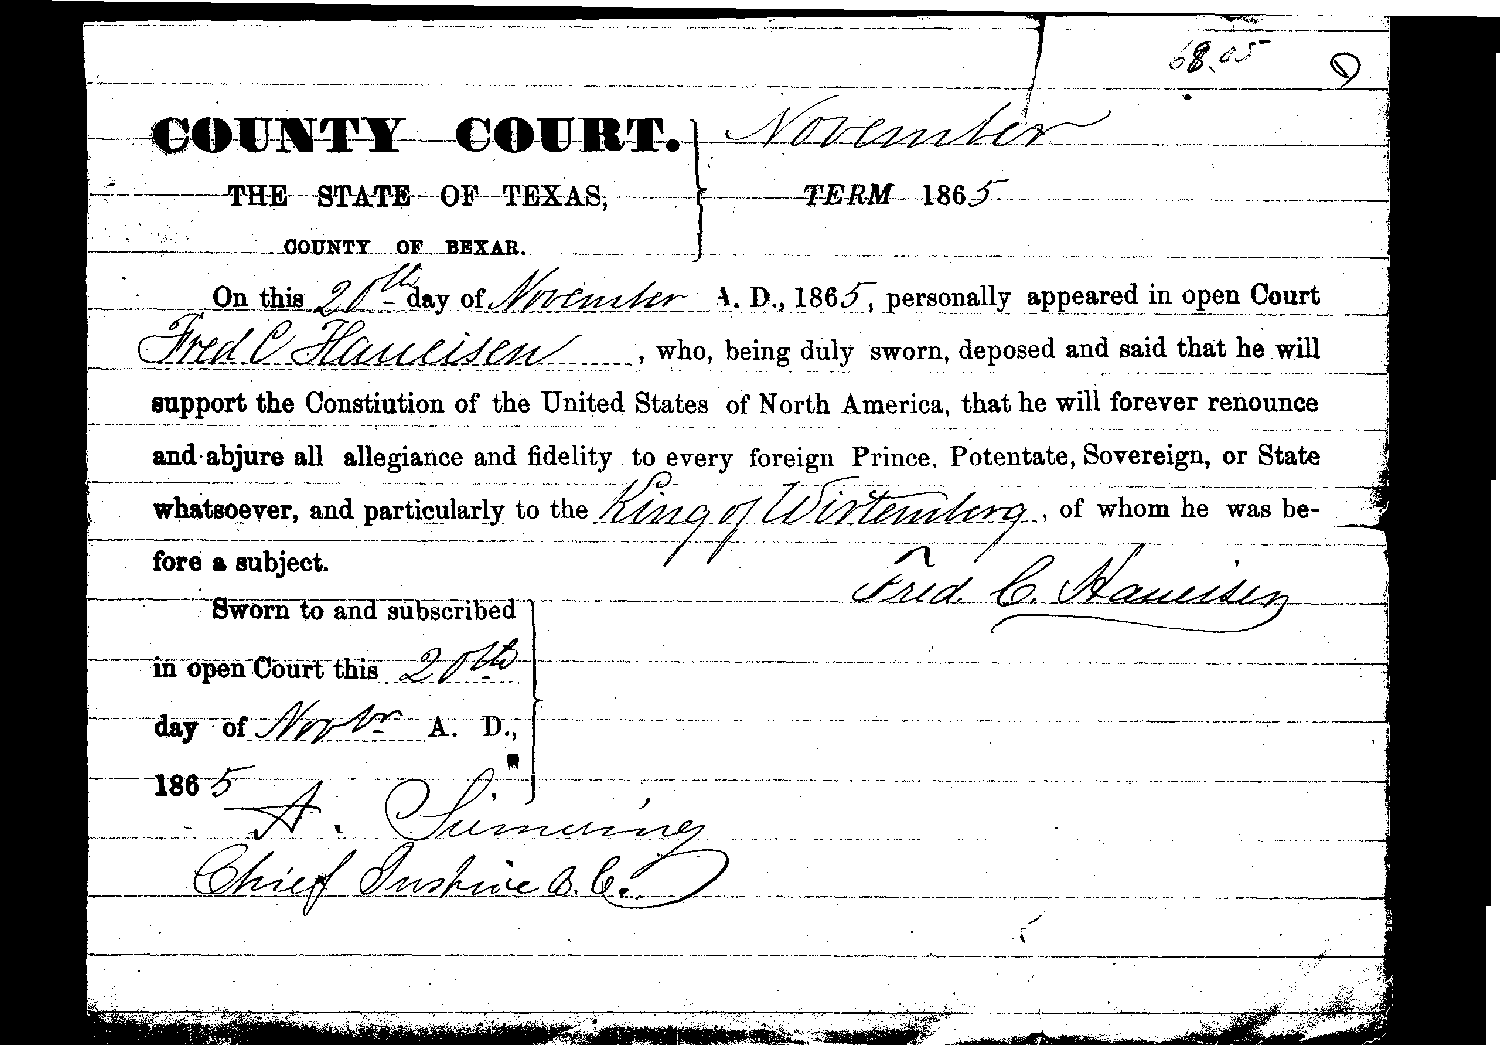 68.05
COUNTY COURT. November
THE STATE OF TEXAS, TERM 1865
COUNTY OF BEXAR.
On this 20th day of November A. D., 1865, personally appeared in open Court
Fred C Haueisen , who, being duly sworn, deposed and said that he will
support the Constiution of the United States of North America, that he will forever renounce
and abjure all allegiance and fidelity to every foreign Prince, Potentate, Sovereign, or State
whatsoever, and particularly to the King of Wirtemberg, of whom he was be-
fore a subject.
Fred. C. Haueisen
Sworn to and subscribed
in open Court this 20th
day of Novbr A. D.,
1865
A. Siemering
Chief Justice B. C.